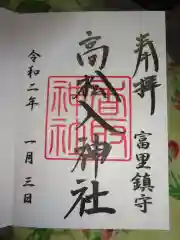 奉拝
富里鎮守
高松入神社
令和二年 一月三日